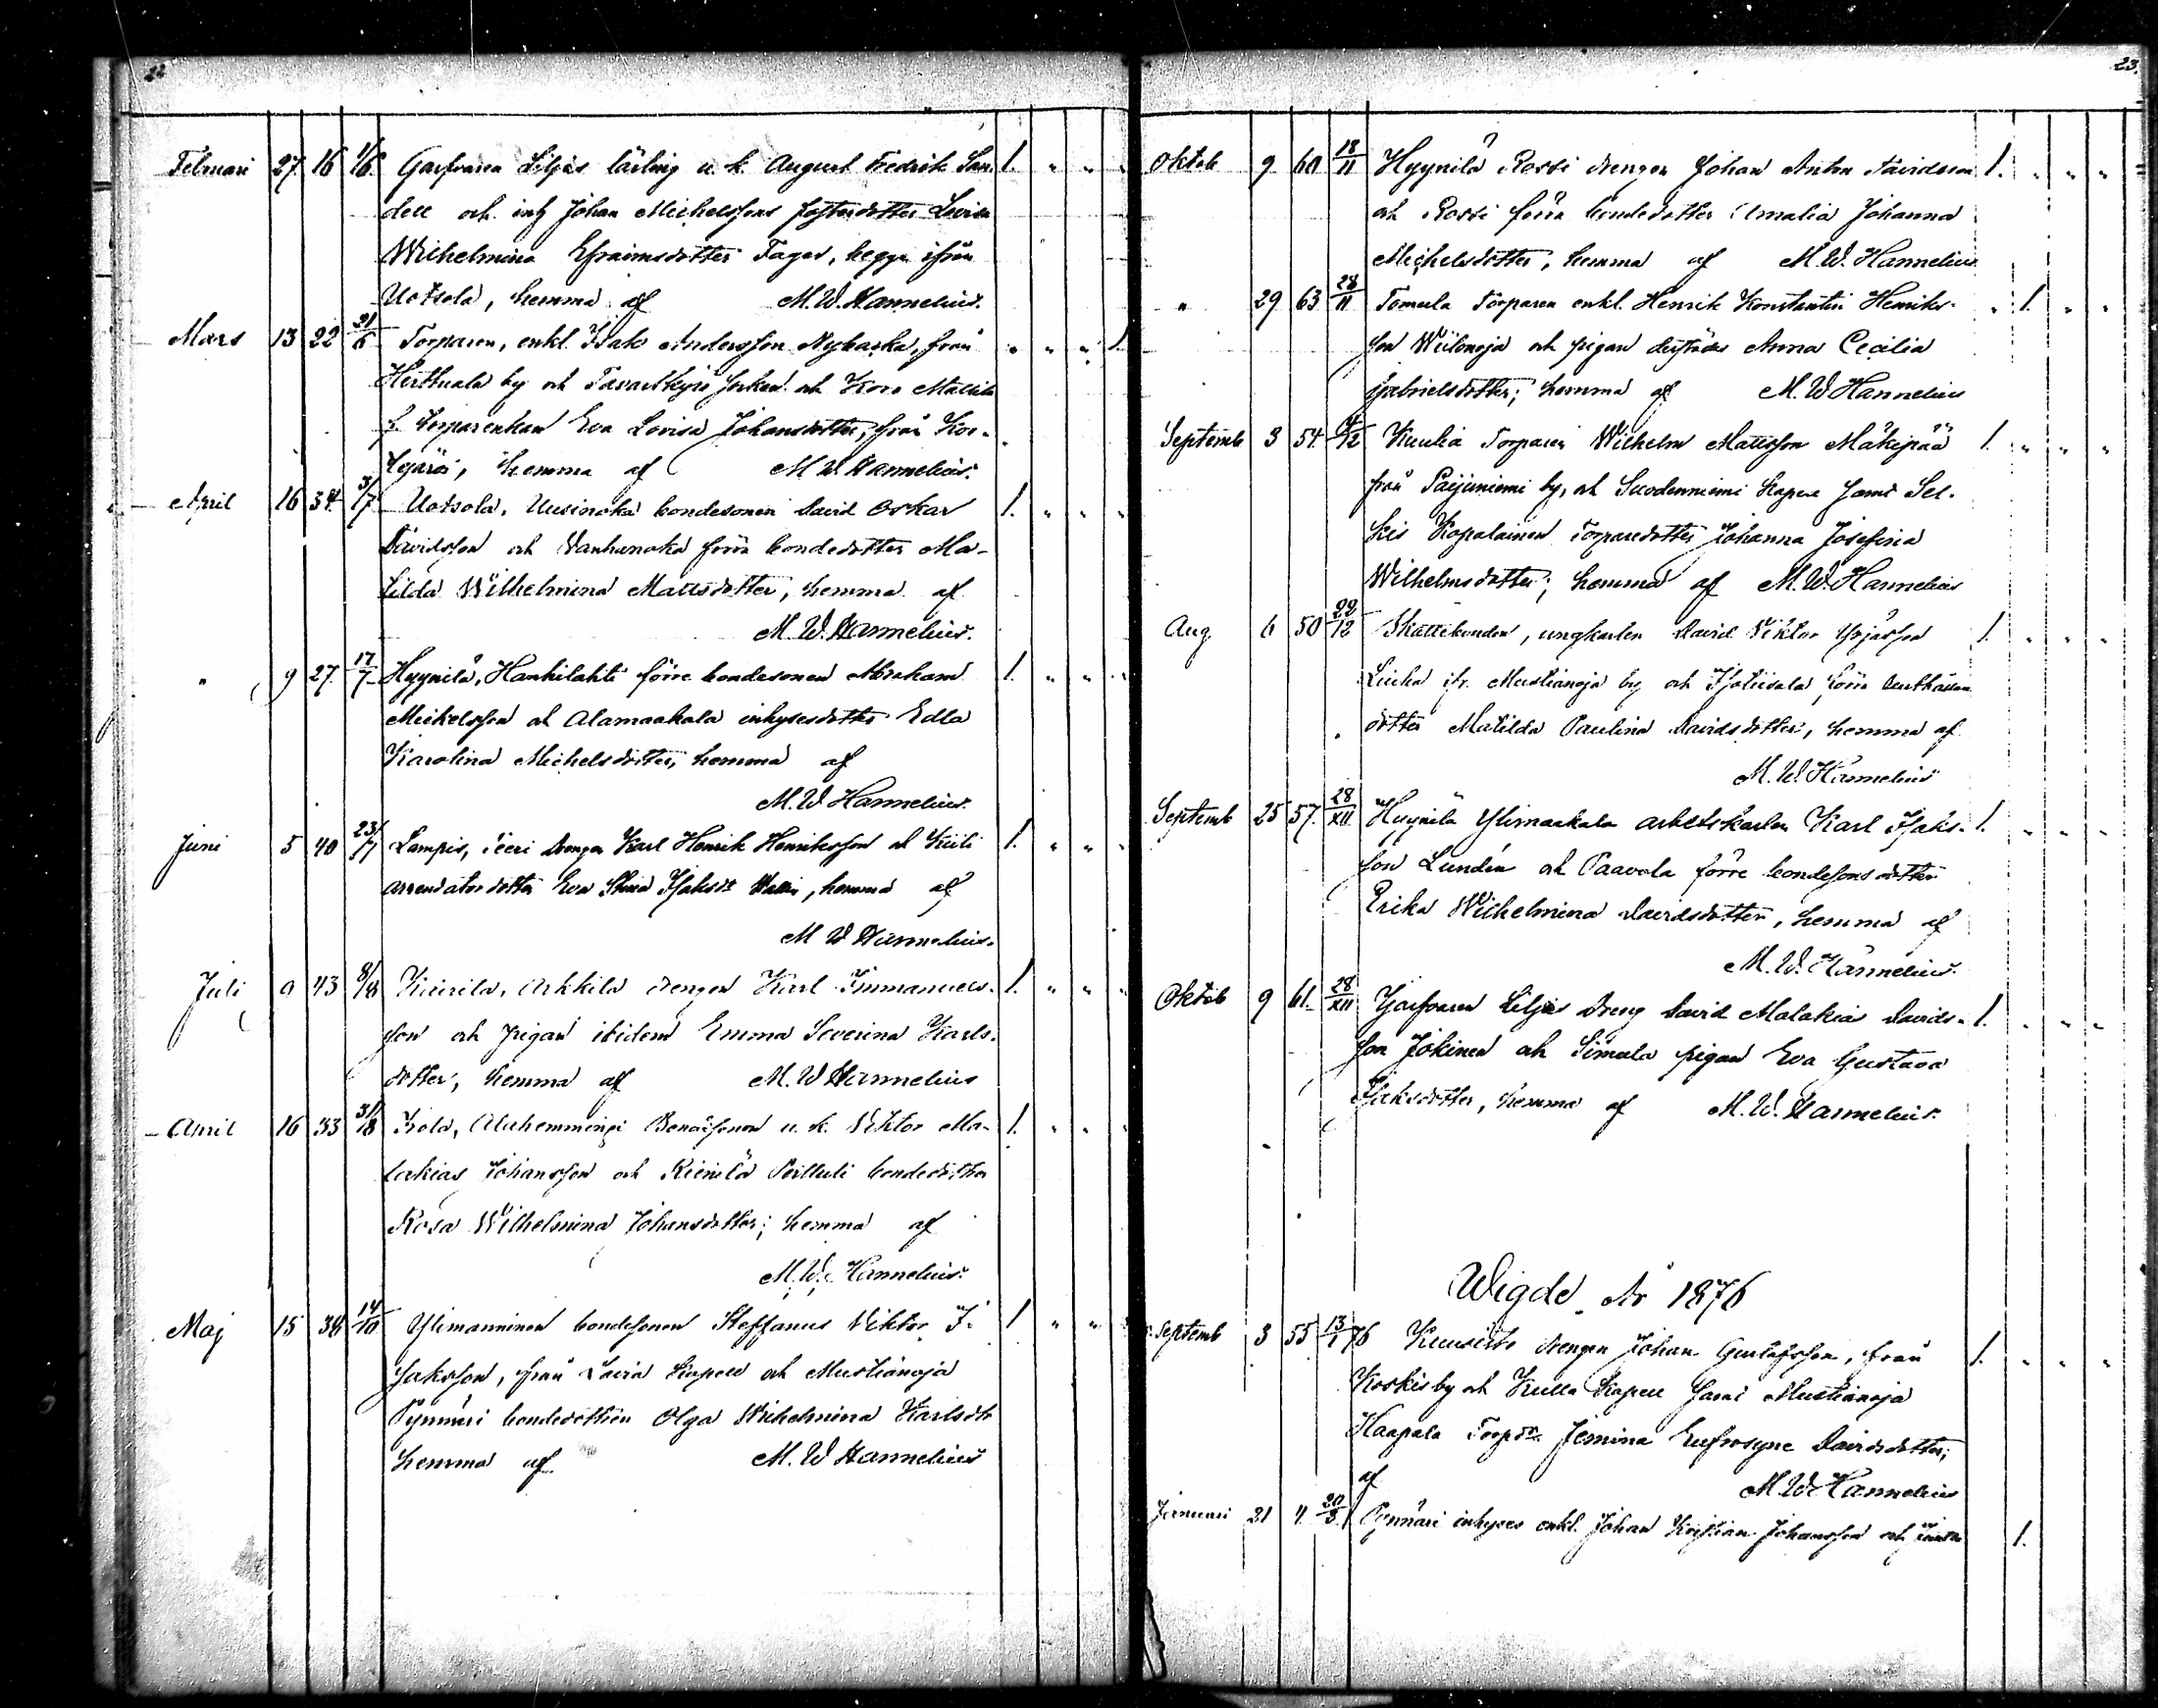 22
Februari 27. 16 1/6. Garfvaren Liljas lärling u. k. August Fredrik San- 1. " "
dell och inh Johan Michelssons fosterdotter Lovisa
Wilhelmina Efraimsdotter Fager, begge ifrån
Uotsola, hemma af M. W. Hannelius.
Mars 13 22 21/6 Torparen, enkl. Isak Andersson Nybacka, från " " " 1.
Herttuala by och Tavastkyro socken och Kove Matila
f. torparenkan Eva Lovisa Johansdotter, från
hemma af M. W. Hannelius.
April 16 34. 3/7 Uotsola, Uusinoka bondesonen David Oskar 1. " " "
Davidsson och Vanhanoka förra bondedotter Ma-
tilda Wilhelmina Mattsdotter, hemma af
M. W. Hannelius.
" 9 27. 17/7 Hyynilä, Hanhilahti förre bondesonen Abraham 1. " " "
Michelsson och Alamaakala inhysesdotter Edla
Karolina Michelsdotter, hemma af
M. W. Hannelius.
Juni 5 40 23/7 Lampis, Iceri Drengen Karl Henrik Henriksson och Kiili 1. " " "
arrendatordotter Eva Stina Isaksdr hemma af
M W Hannelius.
Juli 9 43 8/8 Kiurila, Arkkila drengen Karl Immanuels- 1. " " "
son och pigan ibidem Emma Severina Karls-
dotter, hemma af M. W Hannelius
April 16 33 31/8 Kola, Aluhemmingi Bondesonen u. k. Viktor Ma- 1. " " "
lakias Johansson och Rienilä Perttuli bondedotter
Rosa Wilhelmina Johansdotter; hemma af
M. W. Hannelius.
Maj 15 38 14/10 Ylimanninen bondesonen Steffanus Viktor I- 1 " "
saksson, från Lavia kapell och Mustianoja
Pynnäri bondedottren Olga Wilhelmina Karlsdr
hemma af M. W Hannelius
23.
Oktob 9 60 18/11 Hyynilä Rossi drengen Johan Anton Davidsson 1. " " "
och Rossi förra bondedotter Amalia Johanna
Michelsdotter, hemma af M. W. Hannelius
" 29 63 28/11 Tomula Torparen enkl. Henrik Konstantin Henriks- " 1. " "
son Wiilonoja och pigan derstädes Anna Cecilia
Gabrielsdotter; hemma af M. W Hannelius
Septemb 3 54. /12 Kuulia Torparen Wilhelm Mattsson Mäkipää 1. " " "
från Paijuniemi by, och Suodenniemi kapell samt Sel-
kis Kopalainen Torparedotter Johanna Josefina
Wilhelmsdotter; hemma af M. W. Hannelius
Aug. 6 50 22/12 Skattebonden, ungkarlen David Viktor Yrjässon 1. " " "
Liuha ifr. Mustianoja by och förra
dotter Matilda Paulina Davidsdotter, hemma af
M. W. Hannelius
Septemb 25 57. 28/XII Hyynilä Ylimaakala arbetskarlen Karl Isaks- 1. " " "
son Lundén och Paavola förre bondesonsdotter
Erika Wilhelmina Davidsdotter, hemma af
M. W. Hannelius.
Oktob 9 61. 28/XII Garfvaren Liljas Dreng David Malakias Davids- 1. " " "
son Jokinen och Simula pigan Eva Gustava
Isaksdotter, hemma af M. W. Hannelius.
Wigde År 1876
Septemb 3 55 13/1 76 Kuusisto drengen Johan Gustafsson, från 1. " " "
Koskis by och Kulla Kapell samt Mustianoja
Haapala Torpdr Jemina Eufrosyne Davidsdotter;
af M. W. Hannelius
Januari 21 4. 20/3. Pynnäri inhyses enkl. Johan Kristian Johansson och 1.